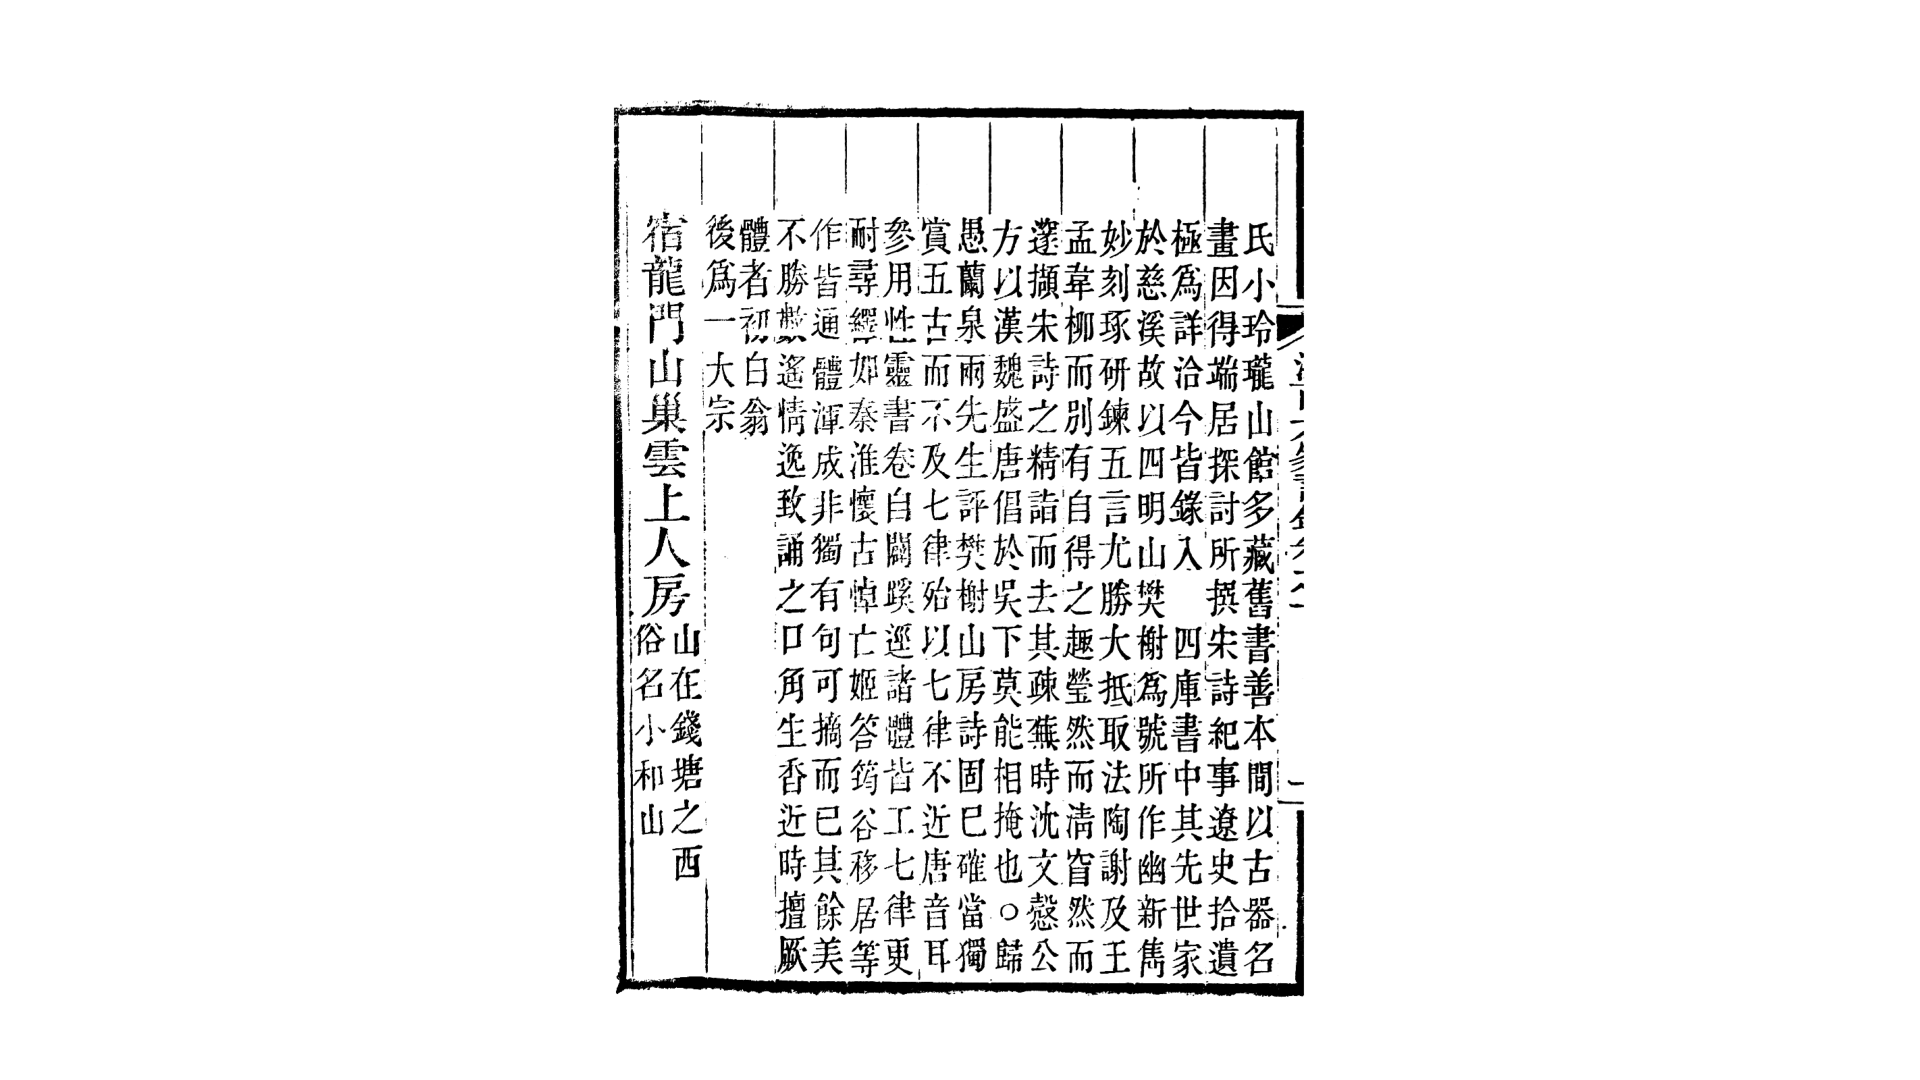 氏小玲瓏山館多藏舊書善本間以古器名
畫因得端居探討所撰宋詩紀事遼史拾遺
極爲詳洽今皆錄入　四庫書中其先世家
於慈溪故以四明山樊榭爲號所作幽新雋
妙刻琢研鍊五言尤勝大抵取法陶謝及王
孟韋柳而別有自得之趣瑩然而清窅然而
邃擷宋詩之精詣而去其疎蕪時沈文慤公
方以漢魏盛唐倡於吳下莫能相掩也○歸
愚蘭泉兩先生評樊榭山房詩固已確當獨
賞五古而不及七律殆以七律不近唐音耳
參用性靈書卷自闢蹊逕諸體皆工七律更
耐尋繹如秦淮懷古悼亡姬答筠谷移居等
作皆通體渾成非獨有句可摘而已其餘美
不勝數遙情逸致誦之口角生香近時擅厥
體者初白翁
後爲一大宗
宿龍門山巢雲上人房山在錢塘之西
俗名小和山